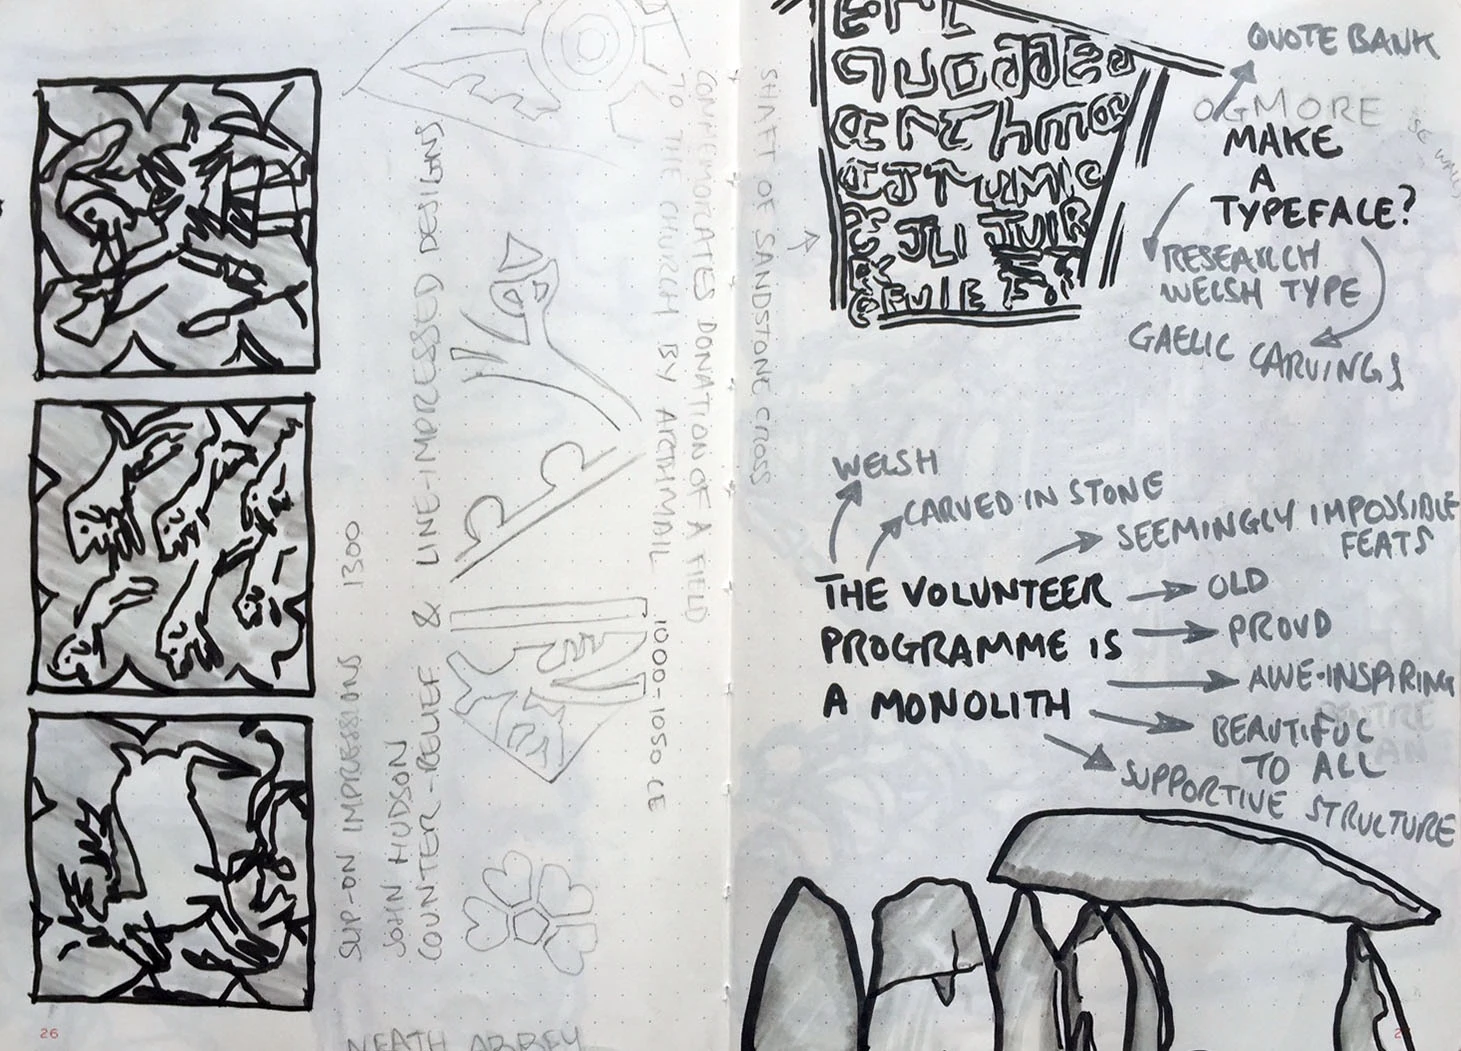 26
SLIP-ON IMPRESSIONS 1300
JOHN HUDSON
COUNTER-RELIEF & LINE-IMPRESSED DESIGNS
NEATH ABBEY
1000-1050 CE
COMMEMORATES DONATION OF A FIELD
TO THE CHURCH BY ARTHMAIL
SHAFT OF SANDSTONE CROSS
QUOTE BANK
OGMORE
MAKE
A
TYPEFACE?
RESEARCH
WELSH TYPE
GAELIC CARVINGS
WELSH
CARVED IN STONE
SEEMINGLY IMPOSSIBLE
FEATS
THE VOLUNTEER
PROGRAMME IS
A MONOLITH
OLD
PROUD
AWE-INSPIRING
BEAUTIFUL
TO ALL
SUPPORTIVE STRUCTURE